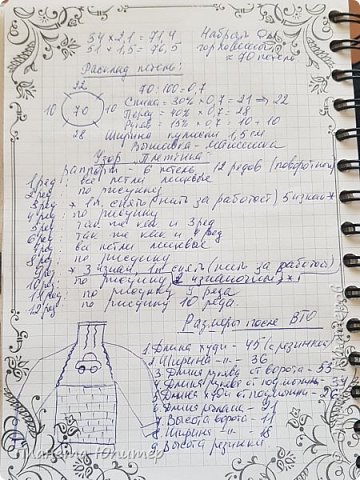 34 × 2,1 = 71,4 Набрать для
51 × 1,5 = 76,5 горловины
≈ 70 петель
Расклад петель:
22
10 70 10
28
70 : 100 = 0,7
Спинка = 30% × 0,7 = 21 ⇒ 22
Перед = 40% × 0,7 = 28
Рукав = 15% × 0,7 = 10
Ширина 1,5 см
Вышивка -
Узор Плетёнка
раппорт - 6 петель, 12 рядов (поворотных)
1 ряд: все петли лицевые
2 ряд: по рисунку
3 ряд: * 1 п. снять (нить за работой) 5 изнан *
4 ряд: по рисунку
5 ряд: так же как и 3 ряд
6 ряд: так же как и 4 ряд
7 ряд: все петли лицевые
8 ряд: по рисунку
9 ряд: * 3 изнан, 1 п снять (нить за работой)
2 изнаночные *
10 ряд: по рисунку
11 ряд: по рисунку 9 ряда
12 ряд: по рисунку 10 ряда
Размеры после ВТО
1. Длина худи - 45 (с резинкой)
2. Ширина - 11 - 36
3. Длина рукава от ворота - 53
4. Длина рукава от подмышки - 34
5. Длина худи от подмышки - 26
6. Длина реглана - 21
7. Высота ворота - 11
8. Ширина - 11 - 18
9. Высота резинки